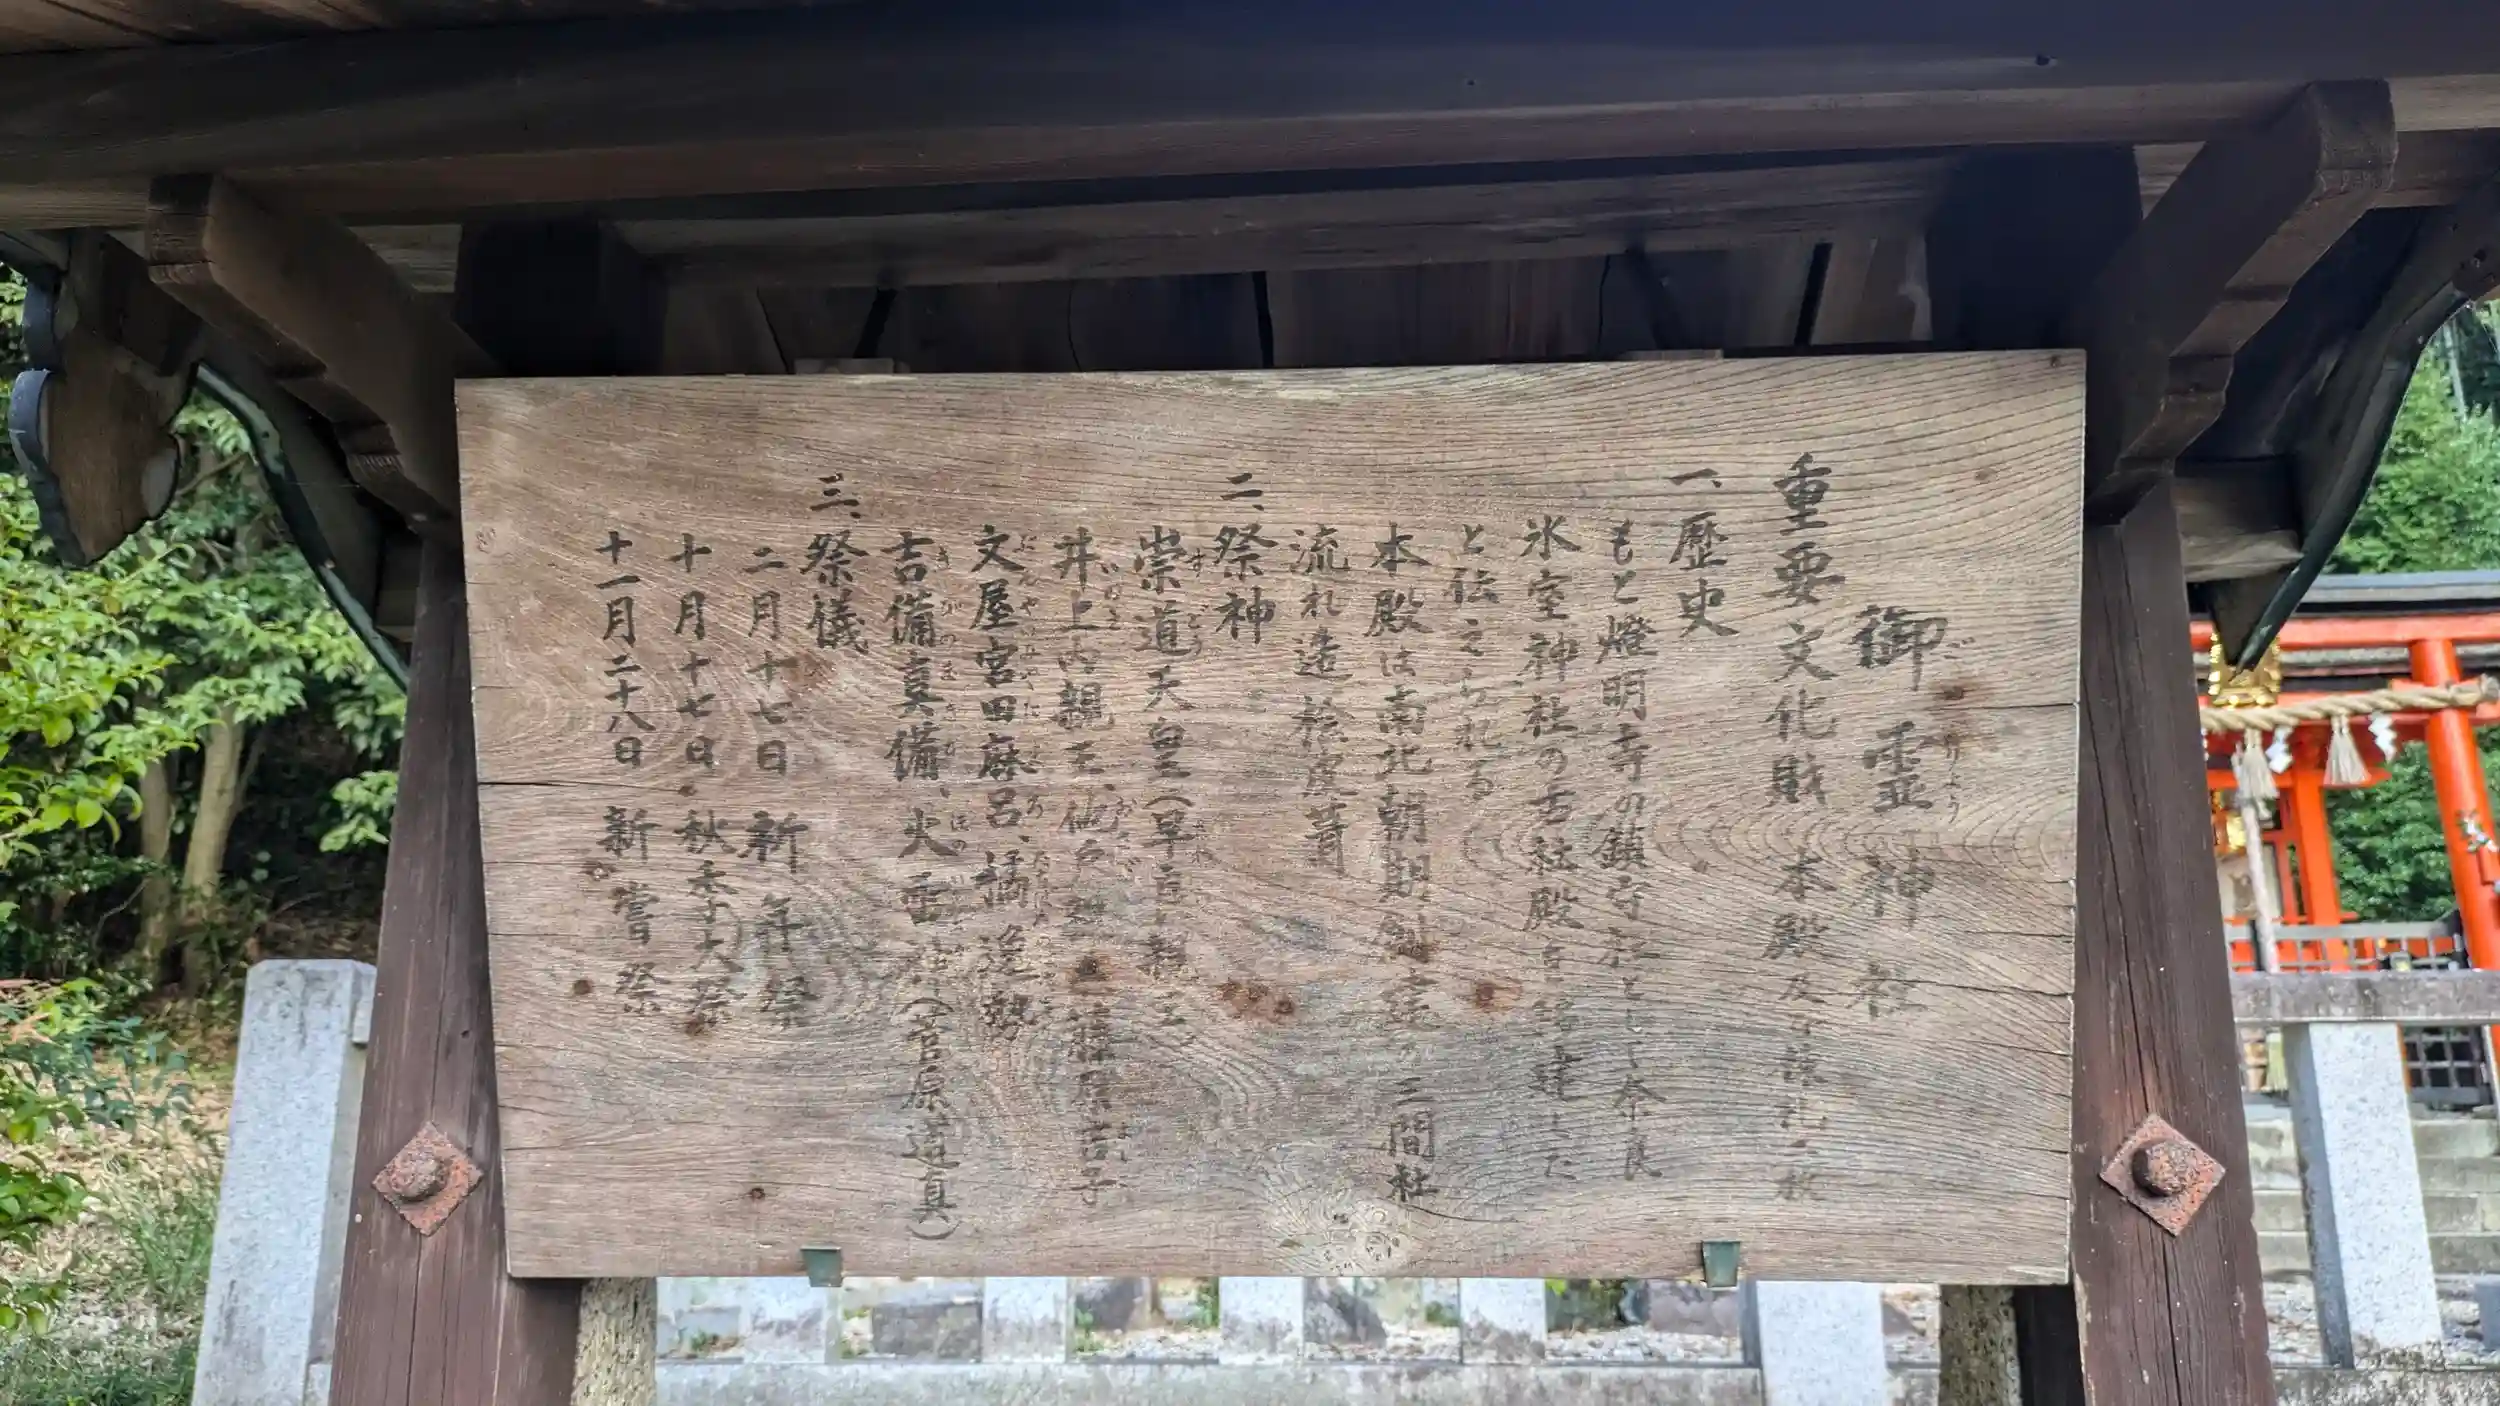 御靈神社
ごりょう
重要文化財 本殿及
一、歴史
もと燈明寺の鎮守社として奈良
氷室神社の舌社殿を移建した
と伝えられる
本殿は南北朝期創建の三間社
流れ造桧皮葺
二、祭神
崇道天皇(早良親王)
すどう
井上内親王、他戸親王、藤原吉子
いのえ
文屋宮田麻呂、橘逸勢
ぶんやのみやたまろ、たちばなの
吉備真備、火雷神(菅原道真)
きびのまきび
三、祭儀
二月十七日 祈年祭
十月十七日 秋季大祭
十一月二十八日 新嘗祭